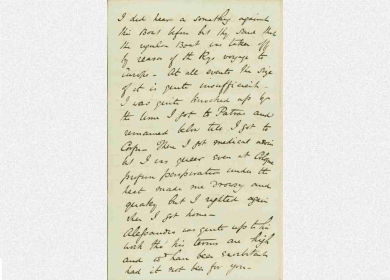 I did hear a something against
this Boat before but they said that
the regular Boat was taken off
by reason of the Kgs voyage to
Europe. At all events the size
of it is quite insufficient.
I was quite knocked up by
the time I got to Patras and
remained below till I got to
Corfu. Then I got medical advice
but I was queer even at
profuse perspiration under the
heat made me drowsy and
quaky but I righted again
when I got home.
Alessandro was quite up to his
work tho' his terms are high
and wd have been exorbitant
had it not been for you.